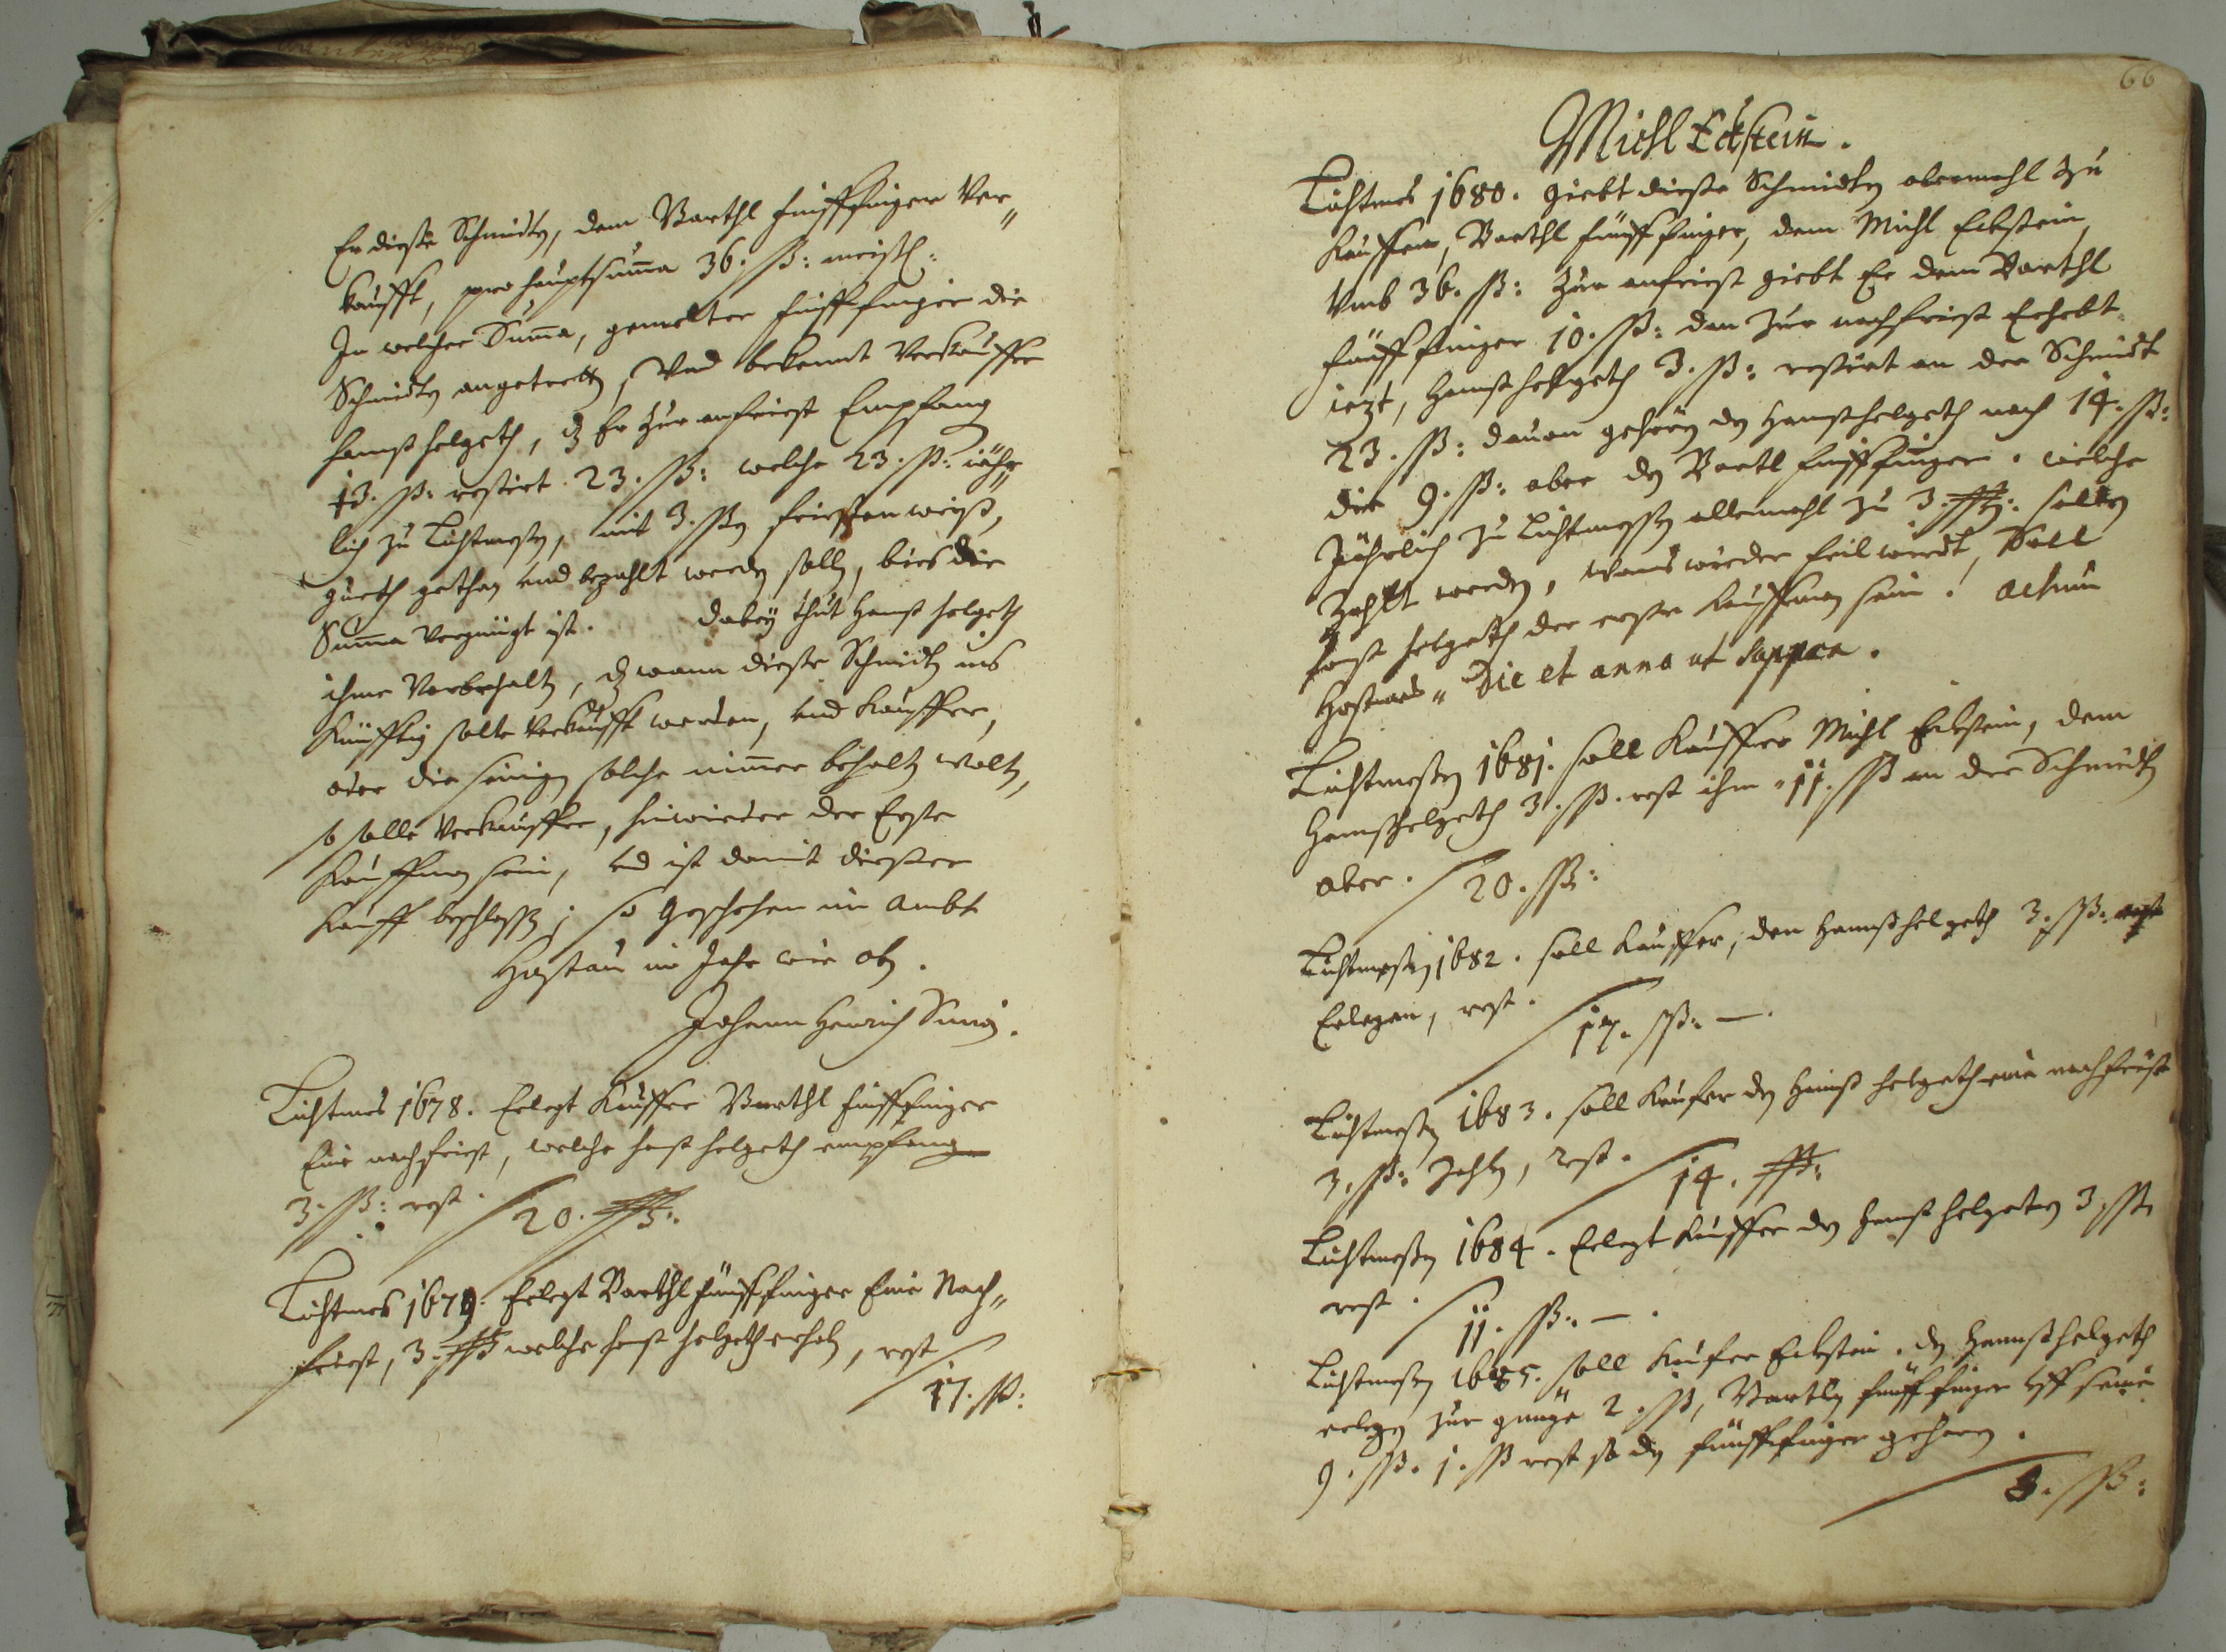 Er dieße Schmidtn, dem Barthl fünffinger Ver„
kaufft, pro hauptsuma 36. ß: meißn:
In welcher Suma, gemelter fünffinger die
Schmidtn angetretten, Und bekennt Verkauffer
Hannß Helgeth, dz Er zur anfriest Empfang
13. ß: restirt 23. ß: welche 23. ß: jähr„
lich zu Lichtmeßn, mit 3. ßn friestenweiß,
gueth gethan und bezahlt werdn solln, bies die
Suma Vergnügt ist. dabeÿ thut Hannß Helgeth
ihme Vorbehaltn, dz wann dieße Schmidtn ins
Künfftig solte Verkaufft werden, und Kauffer,
oder die seinign solche nimer behaltn woltn,
so solle Verkauffer, hinwieder der Erste
Kauffman sein, Und ist damit dießer
Kauff beschloßn; so Geschehen im Ambt
Hostau im Jahr wie obn.
Johann Henrich Simon.
Lichtmes 1678. Erlegt Kauffer Barthl fünffinger
Eine nachfriest, welche Hanß Helgeth empfang
3. ß: rest. 20. ß:
Lichtmes 1679. Erlegt Barthl fünffinger Eine Nach„
friest, 3. ß welche Hanß Helgeth erhebn, rest
17. ß:
66
Michl Eckstein.
Lichtmes 1680. giebt dieße Schmidtn abermahl zu
Kauffen, Barthl fünffinger, dem Michl Eckstein,
Umb 36. ß: Zur anfriest giebt Er dem Barthl
fünffinger 10. ß: dan zur nachfriest Erhebt
iezt, Hannß Helgeth 3. ß: restirt an der Schmidt
23. ß: dauon gehörn dn Hannß Helgeth noch 14. ß:
die 9. ß: aber dn Bartl fünffinger. welche
Jährlich zu Lichtmeßn allemahl zu 3. ß: solln
Zahlt werdn, wans wieder feil wirdt, Soll
Hanß Helgeth der erste Kauffman sein. Actum
Hostau„ Die et anno ut Suppra.
Lichtmeßn 1681. soll Kauffer Michl Eckstein, dem
Hannß Helgeth 3. ß. rest ihm „ 11. ß an der Schmidtn
aber. 20. ß:
Lichtmeßn 1682. soll Kauffer, den Hannß Helgeth 3. ß: rest
Erlegen, rest. 17. ß: —.
Lichtmeßn 1683. soll Kaufer dn Hannß Helgeth eine nachfrist
3. ß: Zahln, rest. 14. ß:
Lichtmeßn 1684. Erlegt Kauffer dn Hannß Helgetn 3. ß.
rest. 11. ß: —.
Lichtmeßn 1685. soll Kaufer Eckstein. dn Hannß Helgeth
erlegn zur gnüge 2. ß, Bartln fünffinger Uff seine
9. ß. 1. ß rest so dn fünffinger gehörn.
8. ß: